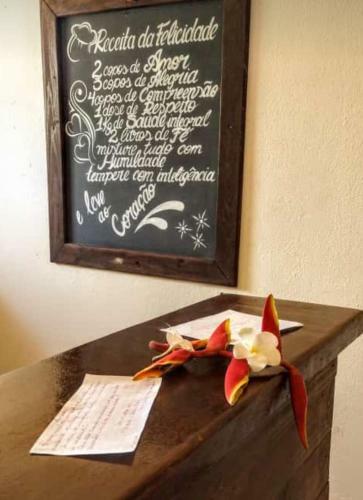 Receita da Felicidade
2 copos de Amor
3 copos de Alegria
4 copos de Compreensão
1 dose de Respeito
1 kg de Saúde integral
2 livros de Fé
misture tudo com
Humildade
tempere com inteligência
e leve
ao
Coração